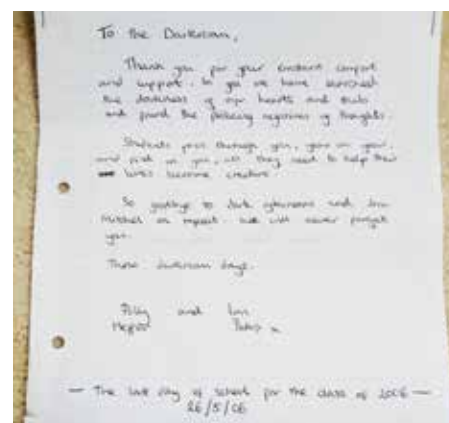 To the Darkroom,
Thank you for your constant comfort
and support. In you we have banished
the darkness of our hearts and souls
and found the negatives of thoughts.
Students pass through you, you,
and in you, all they need to help their
lives become creative.
So goodbye to dark afternoons and Joni
Mitchell on repeat. We will never forget
you.
Those darkroom days.
Polly and
— The last day of school for the class of 2006 —
26/5/06